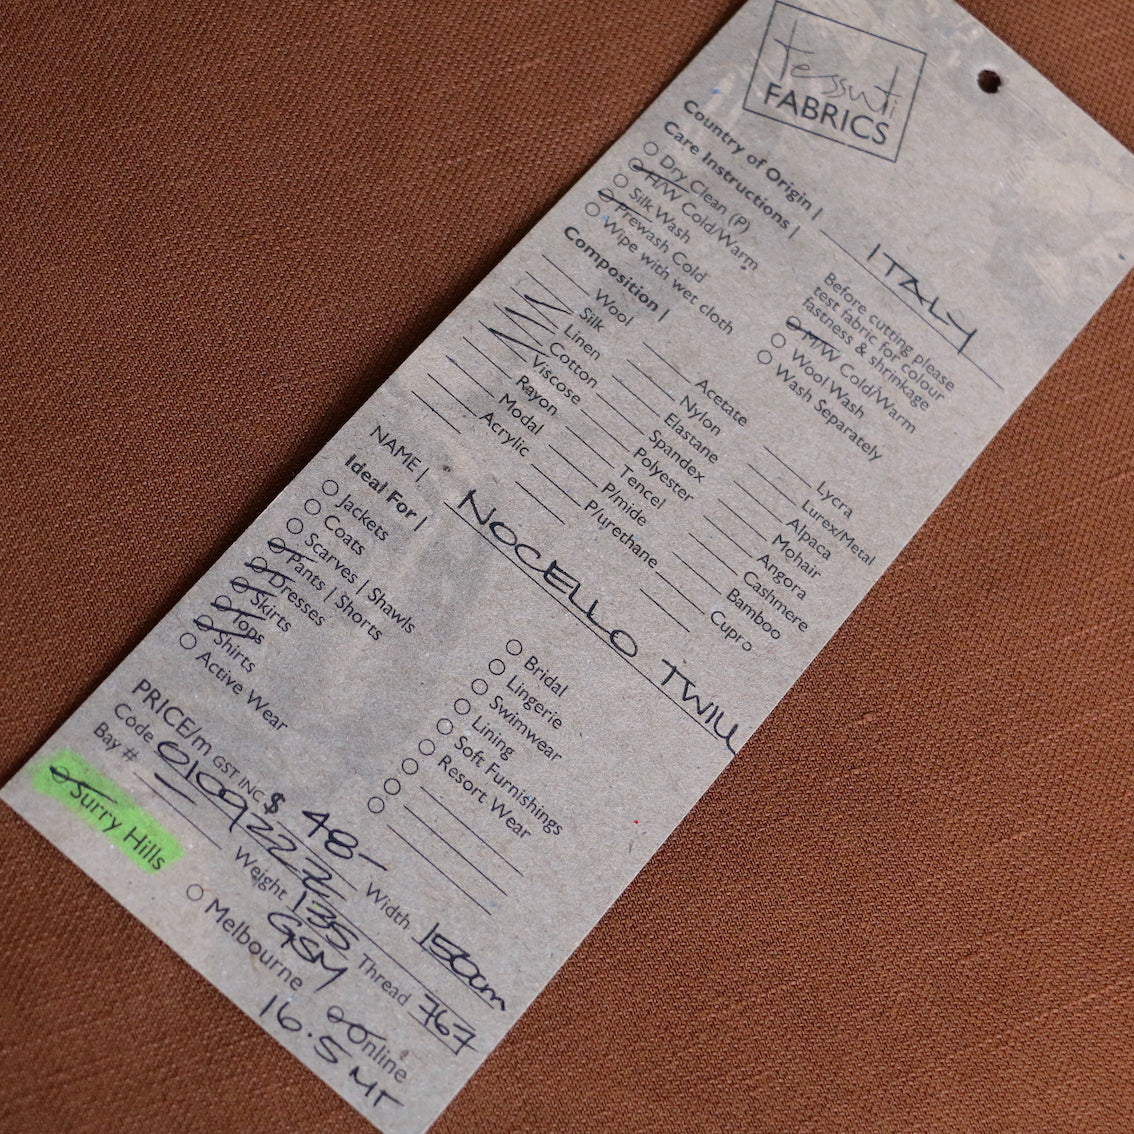 tessuti
FABRICS
Country of Origin | ITALY
Care Instructions |
Dry Clean (P)
H/W Cold/Warm
Silk Wash
Prewash Cold
Wipe with wet cloth
Before cutting please
test fabric for colour
fastness & shrinkage
M/W Cold/Warm
Wool Wash
Wash Separately
Composition |
Wool
Silk
Linen
Cotton
Viscose
Rayon
Modal
Acrylic
Acetate
Nylon
Elastane
Spandex
Polyester
Tencel
P/mide
P/urethane
Lycra
Lurex/Metal
Alpaca
Mohair
Angora
Cashmere
Bamboo
Cupro
NAME | NOCELLO TWILL
Ideal For |
Jackets
Coats
Scarves | Shawls
Pants | Shorts
Dresses
Skirts
Tops
Shirts
Active Wear
Bridal
Lingerie
Swimwear
Lining
Soft Furnishings
Resort Wear
PRICE/m GST INC $ 48- Width 150cm
Code 0109222 Weight 135 GSM Thread 767
Bay #
Surry Hills Melbourne Online
16.5 MT